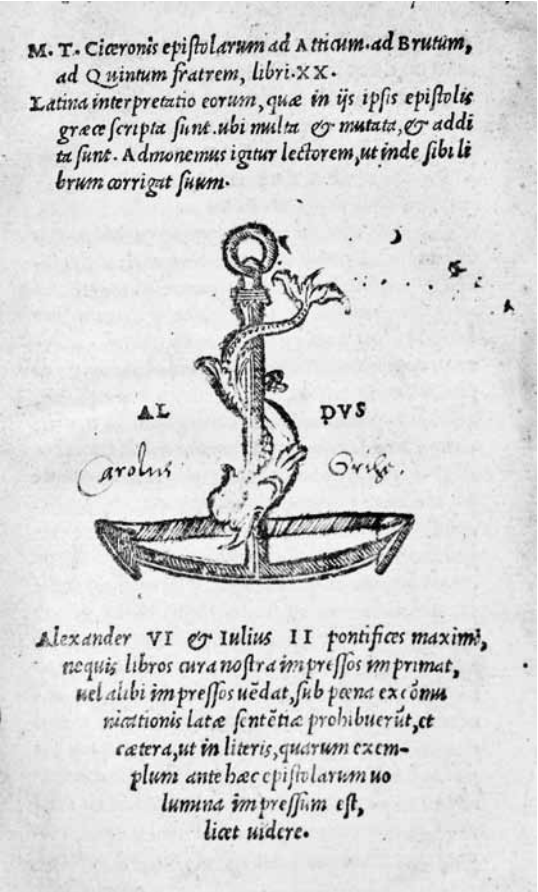 M. T. Ciceronis epistolarum ad Atticum. ad Brutum,
ad Quintum fratrem, libri. XX.
Latina interpretatio eorum, quæ in ijs ipsis epistolis
græce scripta sunt. ubi multa & mutata, & addi
ta sunt. Admonemus igitur lectorem, ut inde sibi li
brum corrigat suum.
AL DVS
Carolus
Alexander VI & Iulius II pontifices maximi,
nequis libros cura nostra impressos imprimat,
uel alibi impressos uẽdat, sub pœna excõmu
nicationis latæ sentẽtiæ prohibuerũt, et
cætera, ut in literis, quarum exem-
plum ante hæc epistolarum uo
lumina impressum est,
licet uidere.